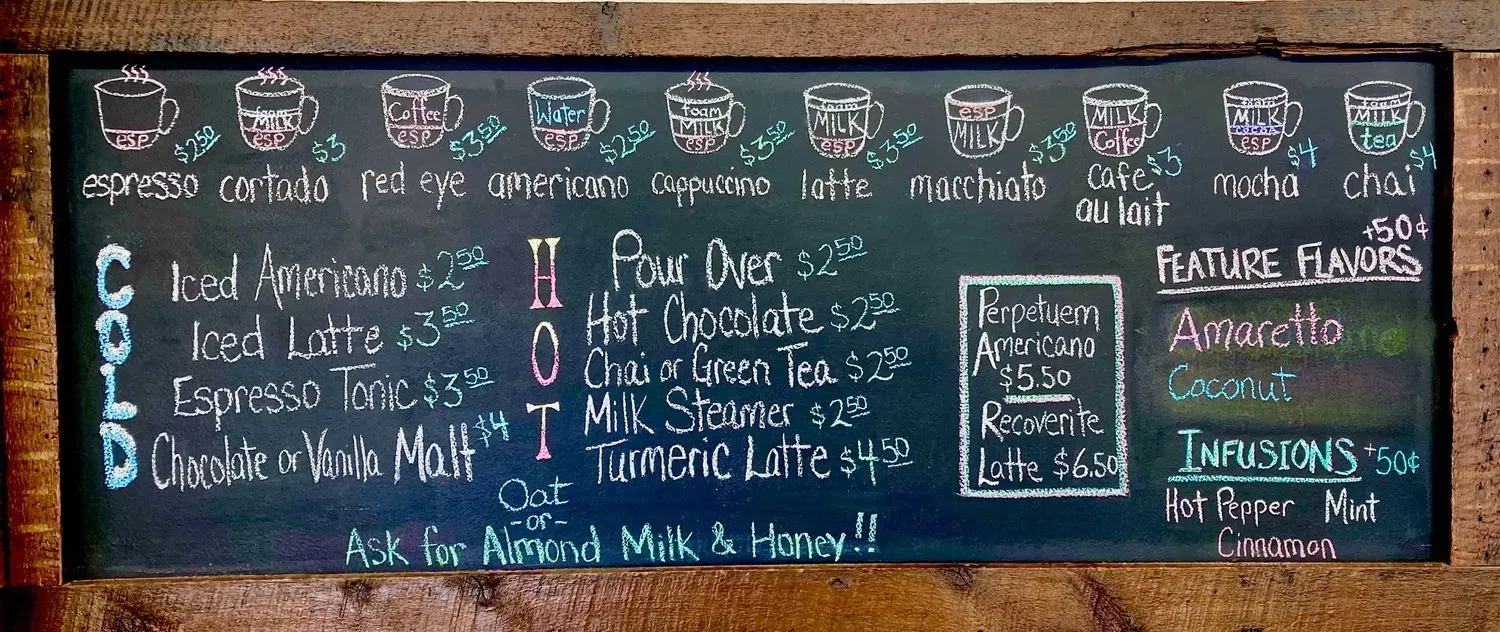 esp
foam
MILK
esp
Coffee
esp
Water
esp
foam
MILK
esp
foam
MILK
esp
esp
MILK
MILK
Coffee
foam
MILK
COCOA
esp
foam
MILK
tea
$2.50 $3 $3.50 $2.50 $3.50 $3.50 $3.50 $3 $4 $4
espresso cortado red eye americano cappuccino latte macchiato cafe mocha chai
au lait
COLD
Iced Americano $2.50
Iced Latte $3.50
Espresso Tonic $3.50
Chocolate or Vanilla Malt $4
HOT
Pour Over $2.50
Hot Chocolate $2.50
Chai or Green Tea $2.50
Milk Steamer $2.50
Turmeric Latte $4.50
Oat
-or-
Ask for Almond Milk & Honey!!
Perpetuem
Americano
$5.50
Recoverite
Latte $6.50
+50¢
FEATURE FLAVORS
Amaretto
Coconut
INFUSIONS +50¢
Hot Pepper Mint
Cinnamon